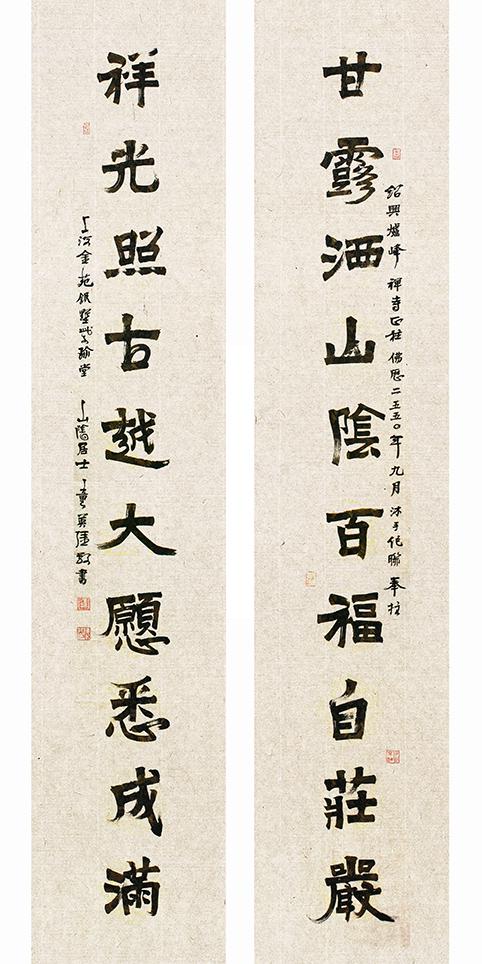 甘露洒山陰百福自莊嚴
紹興爐峰禪寺正柱 佛歷二五五〇年九月 沐手作聯奉
祥光照古越大願悉成滿
上河金苑 堂
山陰居士 書